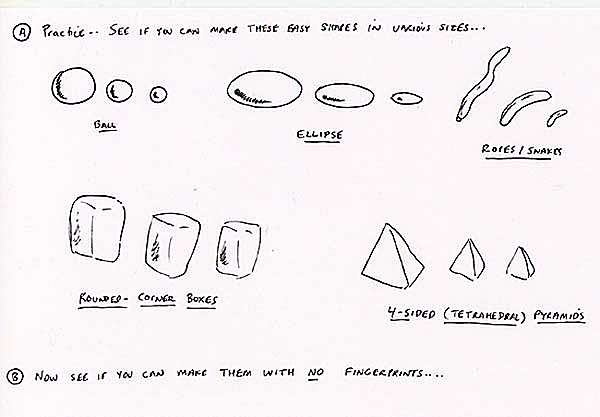 Ⓐ Practice-- See if you can make these easy shapes in various sizes...
Ball
Ellipse
Ropes/Snakes
Rounded-Corner Boxes
4-Sided (Tetrahedral) Pyramids
Ⓑ Now see if you can make them with no fingerprints....